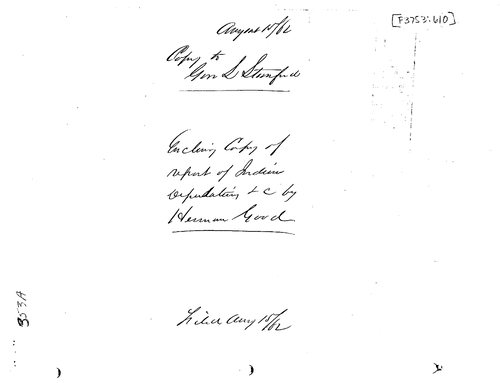 [F3753:610]
August 15/62
Copy to
Gov L Stanford
Encloing Copy of
report of Indian
Depredations & C by
Herman Good
Filed Aug 15/62
353A